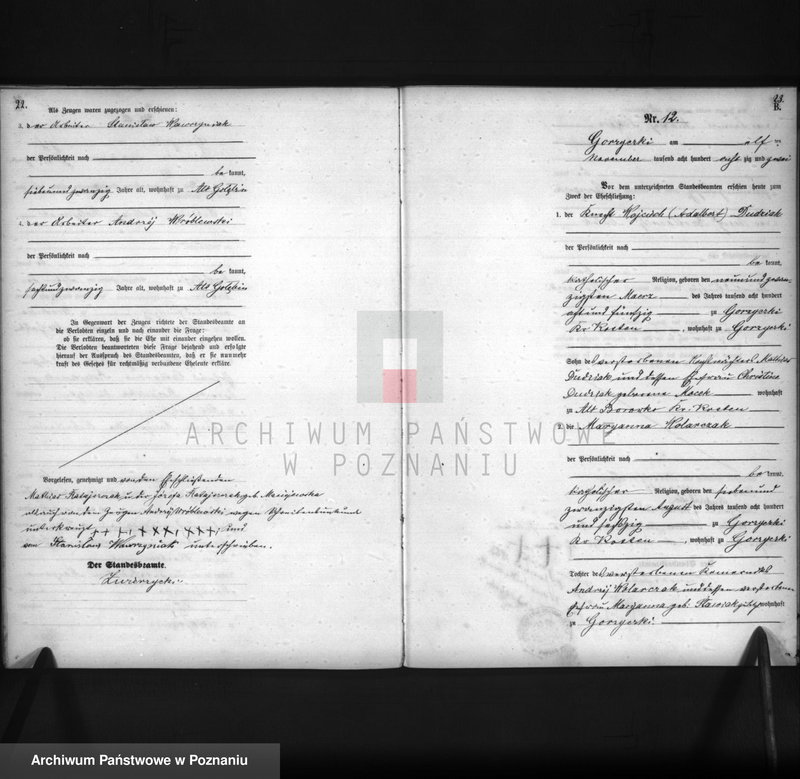 22.
Als Zeugen waren zugezogen und erschienen:
3. der Arbeiter Stanislaw Wawrzyniak
der Persönlichkeit nach
be kannt,
siebenundzwanzig Jahre alt, wohnhaft zu Alt Golębin
4. der Arbeiter Andrzej Wróblewski
der Persönlichkeit nach
be kannt,
sechsundzwanzig Jahre alt, wohnhaft zu Alt Golębin
In Gegenwart der Zeugen richtete der Standesbeamte an
die Verlobten einzeln und nach einander die Frage:
ob sie erklären, daß sie die Ehe mit einander eingehen wollen.
Die Verlobten beantworteten diese Frage bejahend und erfolgte
hierauf der Ausspruch des Standesbeamten, daß er sie nunmehr
kraft des Gesetzes für rechtmäßig verbundene Eheleute erkläre.
Vorgelesen, genehmigt und von den Eheschließenden
Mathias Ratajczak u. der Józefa Ratajczak geb.
als auch von dem Zeugen Andrzej Wróblewski wegen Schreibensunkunde
unterkreuzt, +++, +++, +++, und
von Stanislaw Wawrzyniak unterschrieben.
Der Standesbeamte.
23.
B.
Nr. 12.
Gorzyczki am elf
November tausend acht hundert acht zig und zwei
Vor dem unterzeichneten Standesbeamten erschien heute zum
Zweck der Eheschließung:
1. der Knecht Wojciech (Adalbert) Dudziak
der Persönlichkeit nach
be kannt,
katholischer Religion, geboren den neunundzwan-
zigsten Maerz des Jahres tausend acht hundert
acht und fünfzig zu Gorzyczki
Kr Kosten, wohnhaft zu Gorzyczki
Sohn des verstorbenen Mathias
Dudziak und dessen Ehefrau Christine
Dudziak geborene Kacek wohnhaft
zu Alt Borowko Kr. Kosten
2. die Maryanna Kolarczak
der Persönlichkeit nach
be kannt,
katholischer Religion, geboren den sieben und
zwanzigsten August des Jahres tausend acht hundert
und sechszig zu Gorzyczki
Kr Kosten, wohnhaft zu Gorzyczki
Tochter des verstorbenen
Andrzej Kolarczak und dessen verstorbenen
Ehefrau Maryanna geb. wohnhaft
zu Gorzyczki
ARCHIWUM PAŃSTWOWE
W POZNANIU
Archiwum Państwowe w Poznaniu